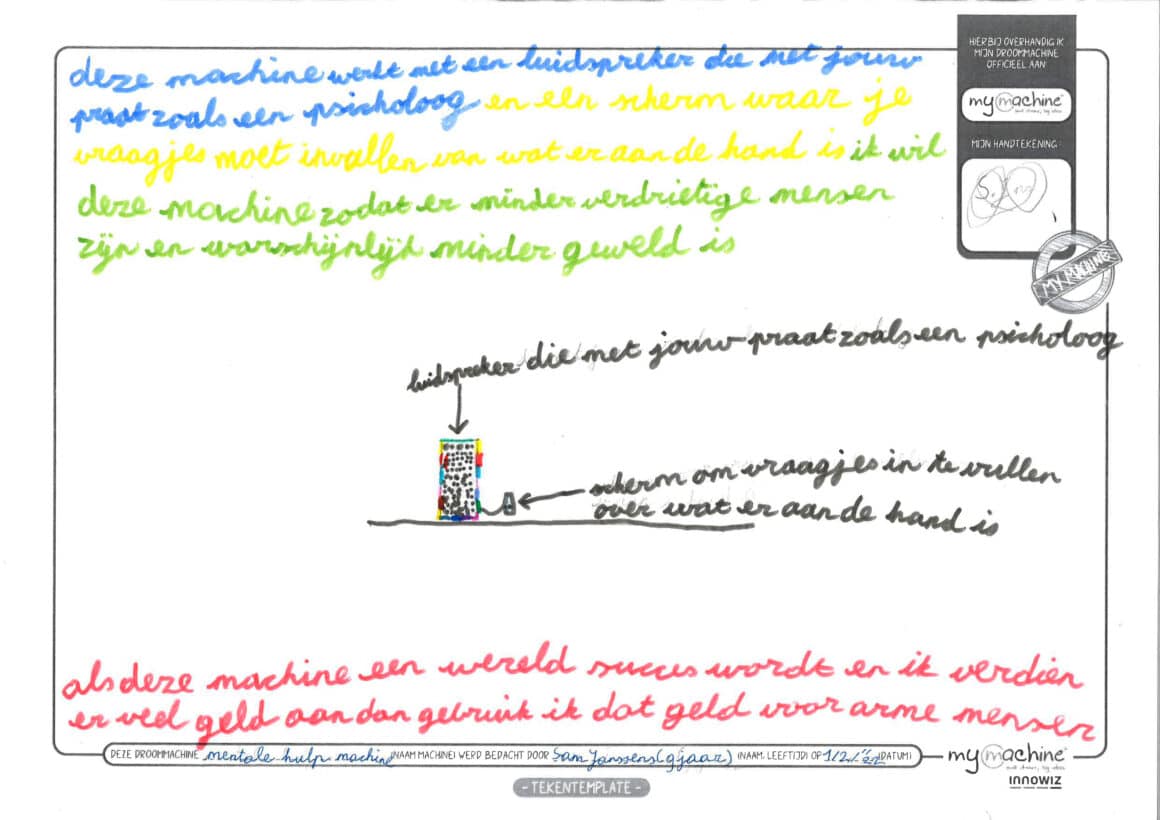 deze machine werkt met een luidspreker die met jouw
praat zoals een psicholoog en een scherm waar je
vraagjes moet invullen van wat er aan de hand is ik wil
deze machine zodat er minder verdrietige mensen
zijn en warschijnlijk minder geweld is
HIERBIJ OVERHANDIG IK
MIJN DROOMMACHINE
OFFICIEEL AAN
mymachine
MIJN HANDTEKENING:
MY MACHINE
luidspreker die met jouw praat zoals een psicholoog
scherm om vraagjes in te vullen
over wat er aan de hand is
als deze machine een wereld succes wordt en ik verdien
er veel geld aan dan gebruik ik dat geld voor arme mensen
DEZE DROOMMACHINE mentale hulp machine (NAAM MACHINE) WERD BEDACHT DOOR Sam Janssens (9jaar) (NAAM, LEEFTIJD) OP (DATUM)
mymachine
INNOWIZ
- TEKENTEMPLATE -